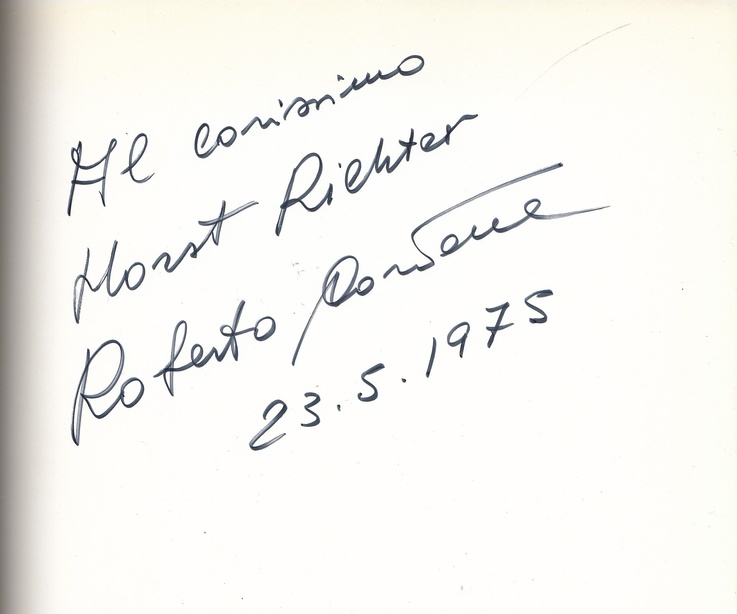 Al carissimo
Horst Richter
Roberto Cordone
23.5.1975